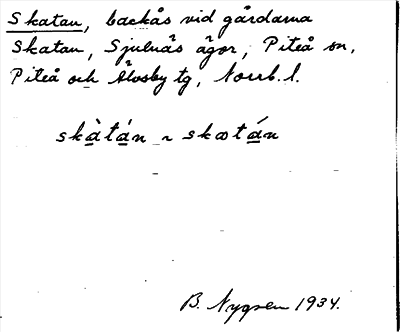 Skatan, backås vid gårdarna
Skatan, Sjulnäs ägor, Piteå sn,
Piteå och Älvsby tg, Norrb. l.
skàtán ~ skatán
B. Nygren 1934.